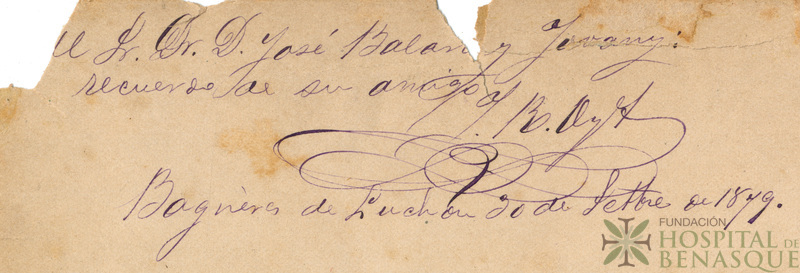 Al Sr. Dr. D. José Balari y Jovany:
recuerdo de su amigo
J. R.
Bagnères de Luchon 30 de Setbre de 1879.
FUNDACIÓN
HOSPITAL DE
BENASQUE